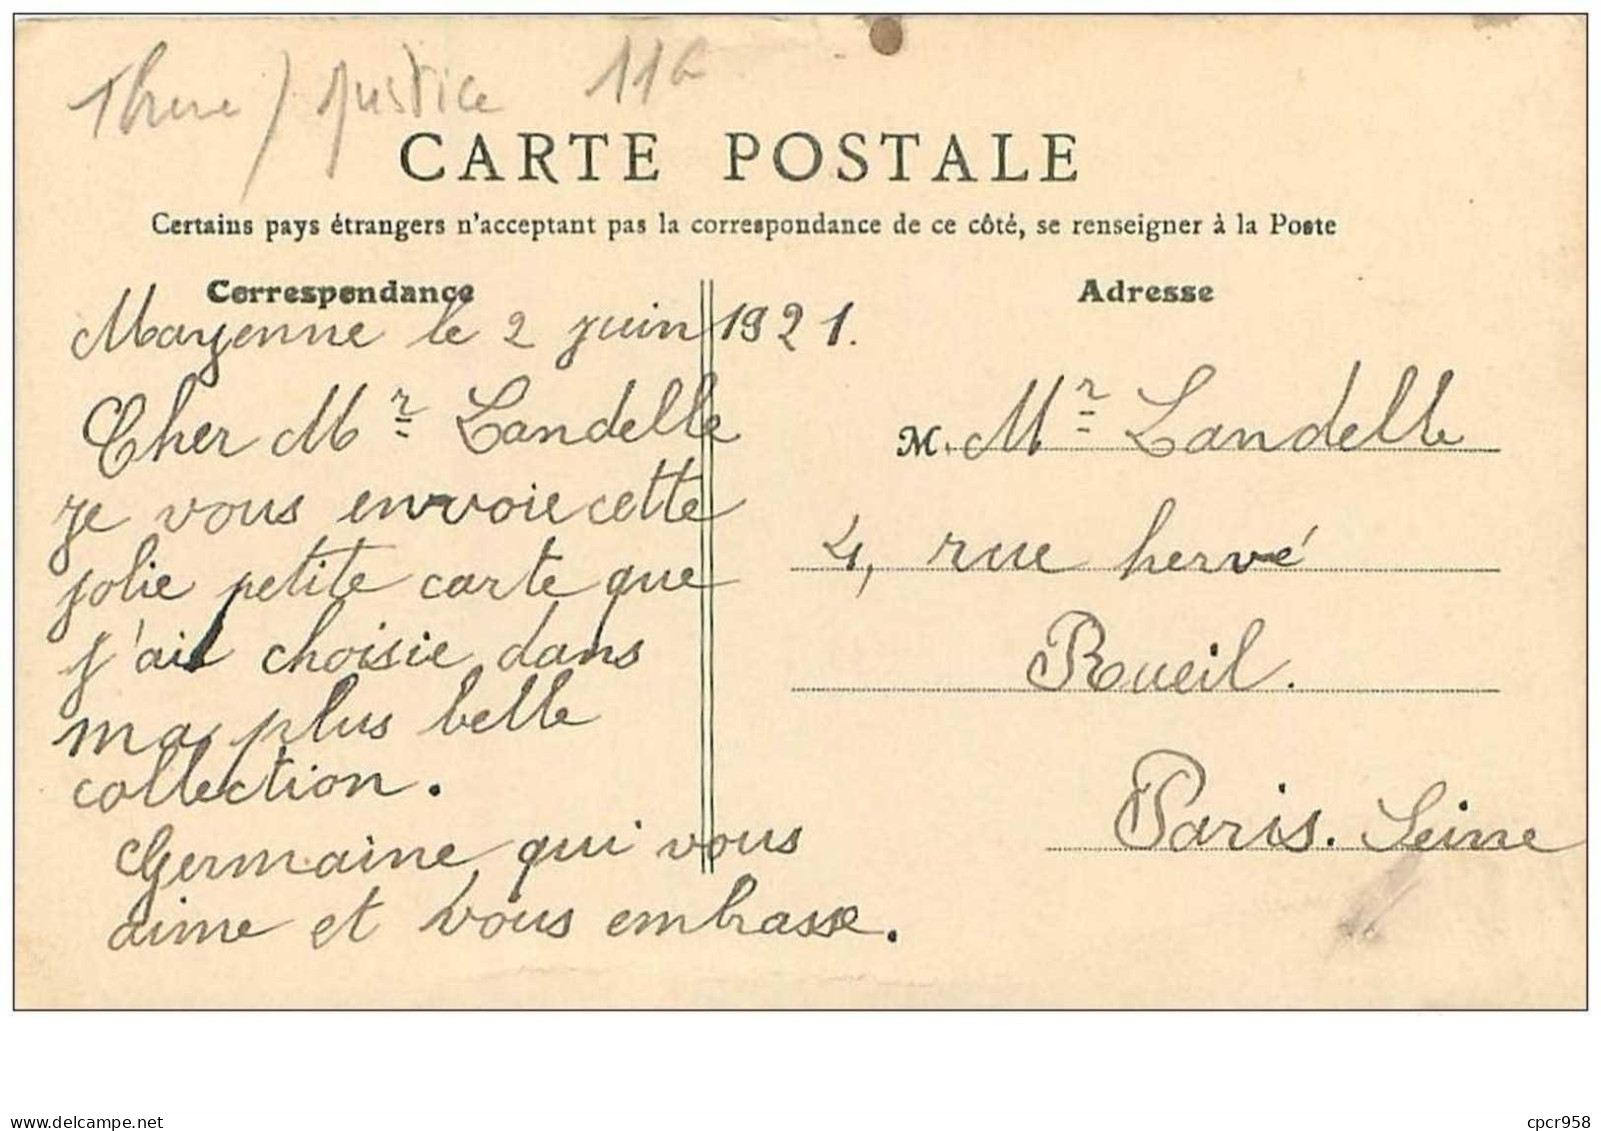 Justice
CARTE POSTALE
Certains pays étrangers n'acceptant pas la correspondance de ce côté, se renseigner à la Poste
Correspondance
Mayenne le 2 juin 1921.
Cher Mr Landelle
je vous envoie cette
jolie petite carte que
j'ai choisie dans
ma plus belle
collection.
Germaine qui vous
aime et vous embrasse.
Adresse
M. Mr Landelle
4, rue hervé
Rueil.
Paris. Seine
delcampe.net
cpcr958